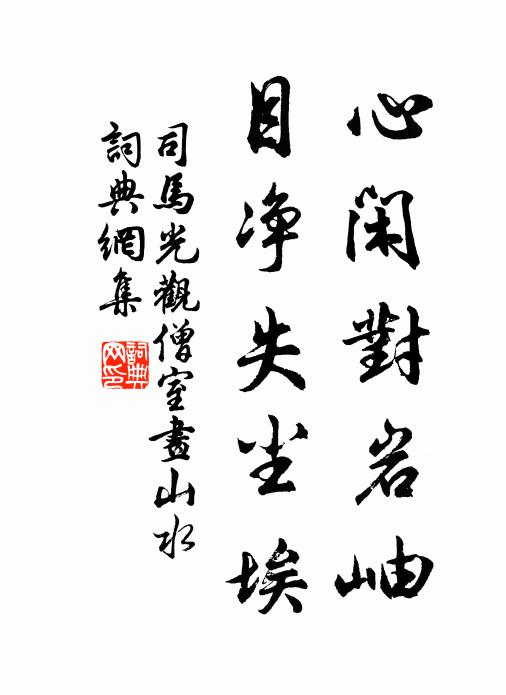 心闲對岩岫
目净失尘埃
司馬光觀僧室畫山水
詞典網集
詞典网印